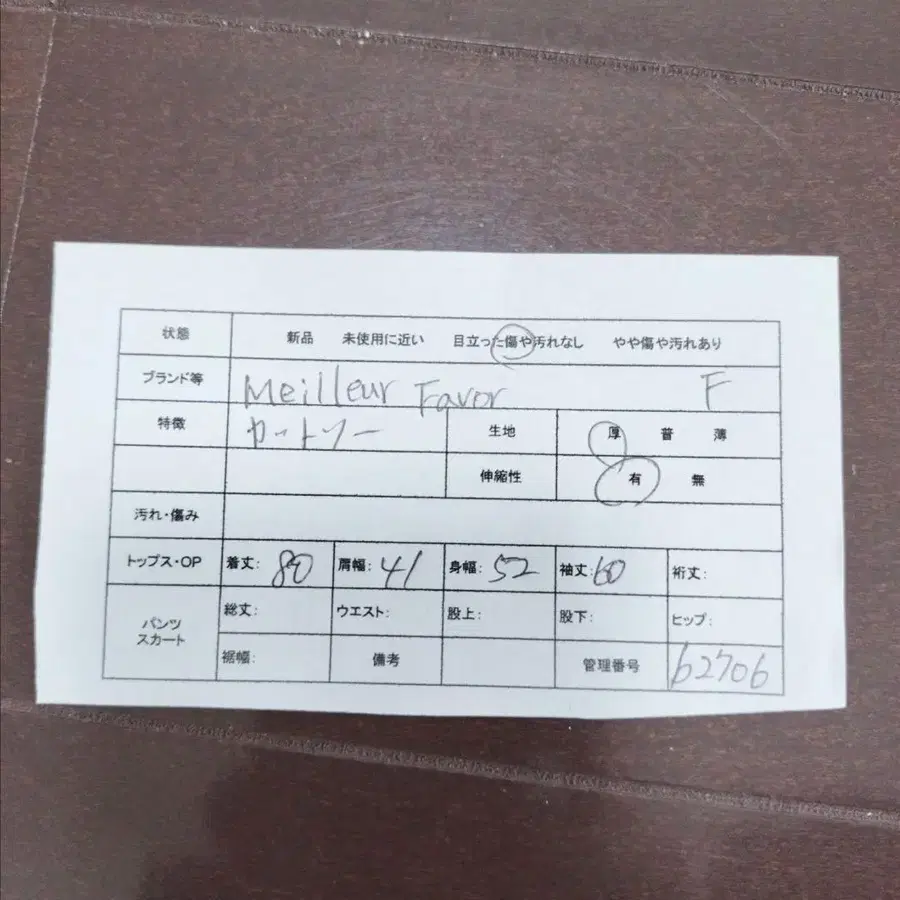 状態 新品 未使用に近い 目立った傷や汚れなし やや傷や汚れあり
ブランド等 Meilleur Favor F
特徴 カットソー 生地 厚 普 薄
伸縮性 有 無
汚れ・傷み
トップス・OP 着丈: 80 肩幅: 41 身幅: 52 袖丈: 60 裄丈:
パンツ スカート 総丈: ウエスト: 股上: 股下: ヒップ:
裾幅: 備考 管理番号 62706